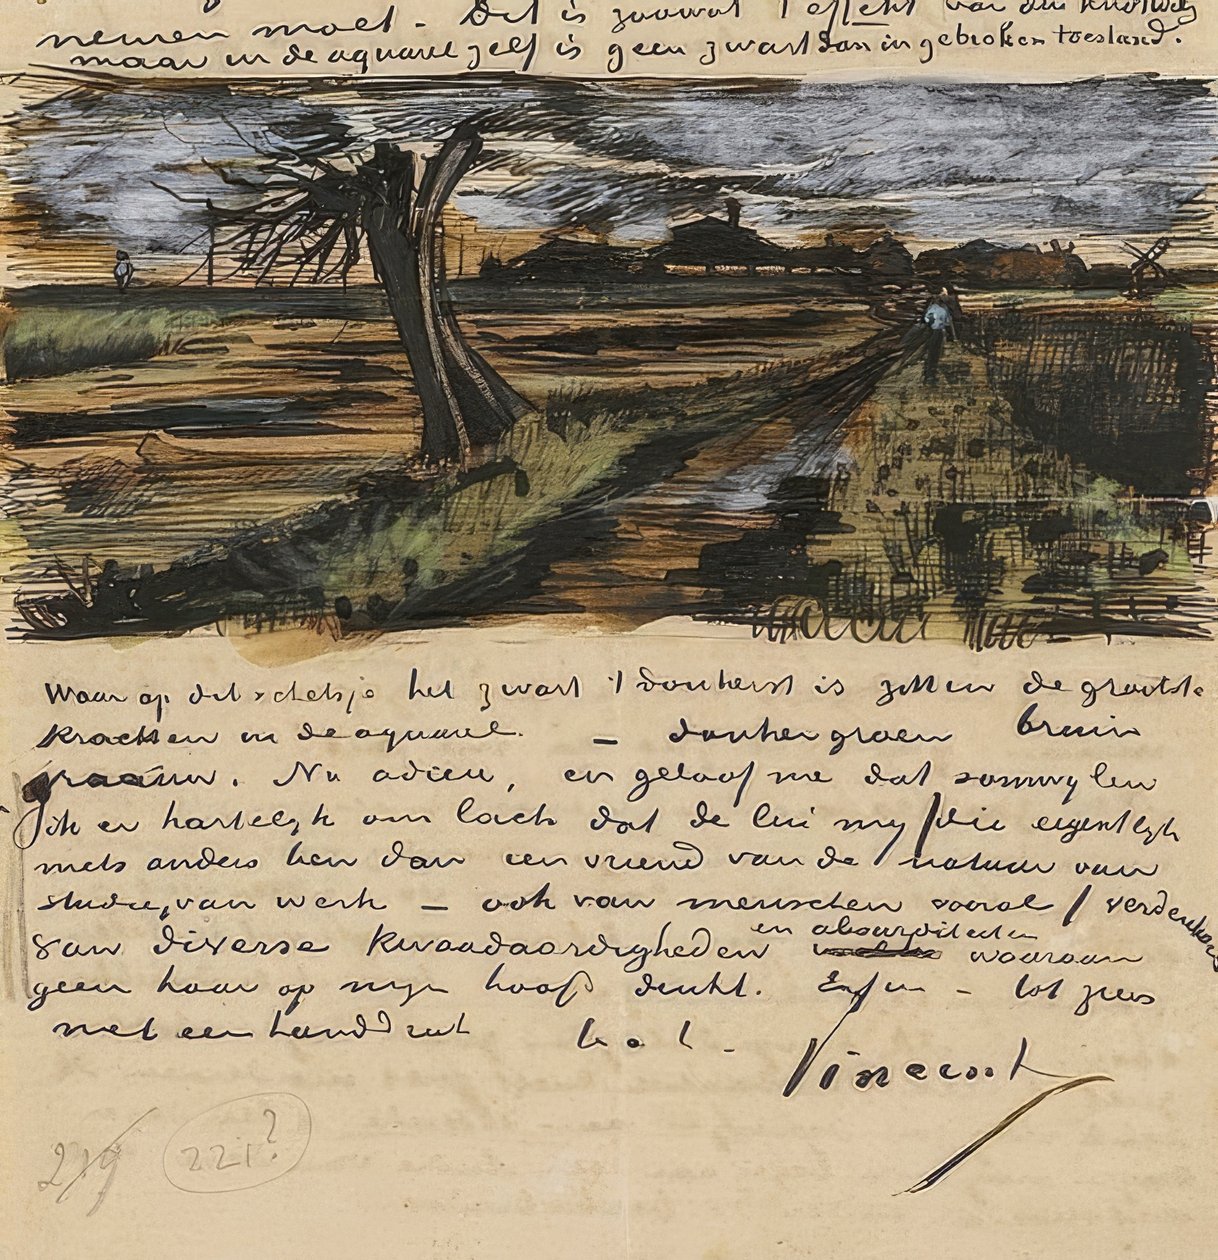 nemen moet – Dit is zoowat 't effekt van den knotwilg
maar in de aquarel zelf is geen zwart dan in gebroken toestand.
Waar op dit schetsje het zwart 't donkerst is zitten de grootste
krachten in de aquarel – donkergroen bruin
graauw. Nu adieu, en geloof me dat somwijlen
ik er hartelijk om lach dat de lui mij /die eigentlijk
niets anders ben dan een vriend van de natuur van
studie, van werk – ook van menschen vooral/ verdenken
van diverse kwaadaardigheden en absurditeiten waaraan
geen haar op mijn hoofd denkt. Enfin – tot ziens
met een handdruk t. à. t. –
Vincent
219 221?